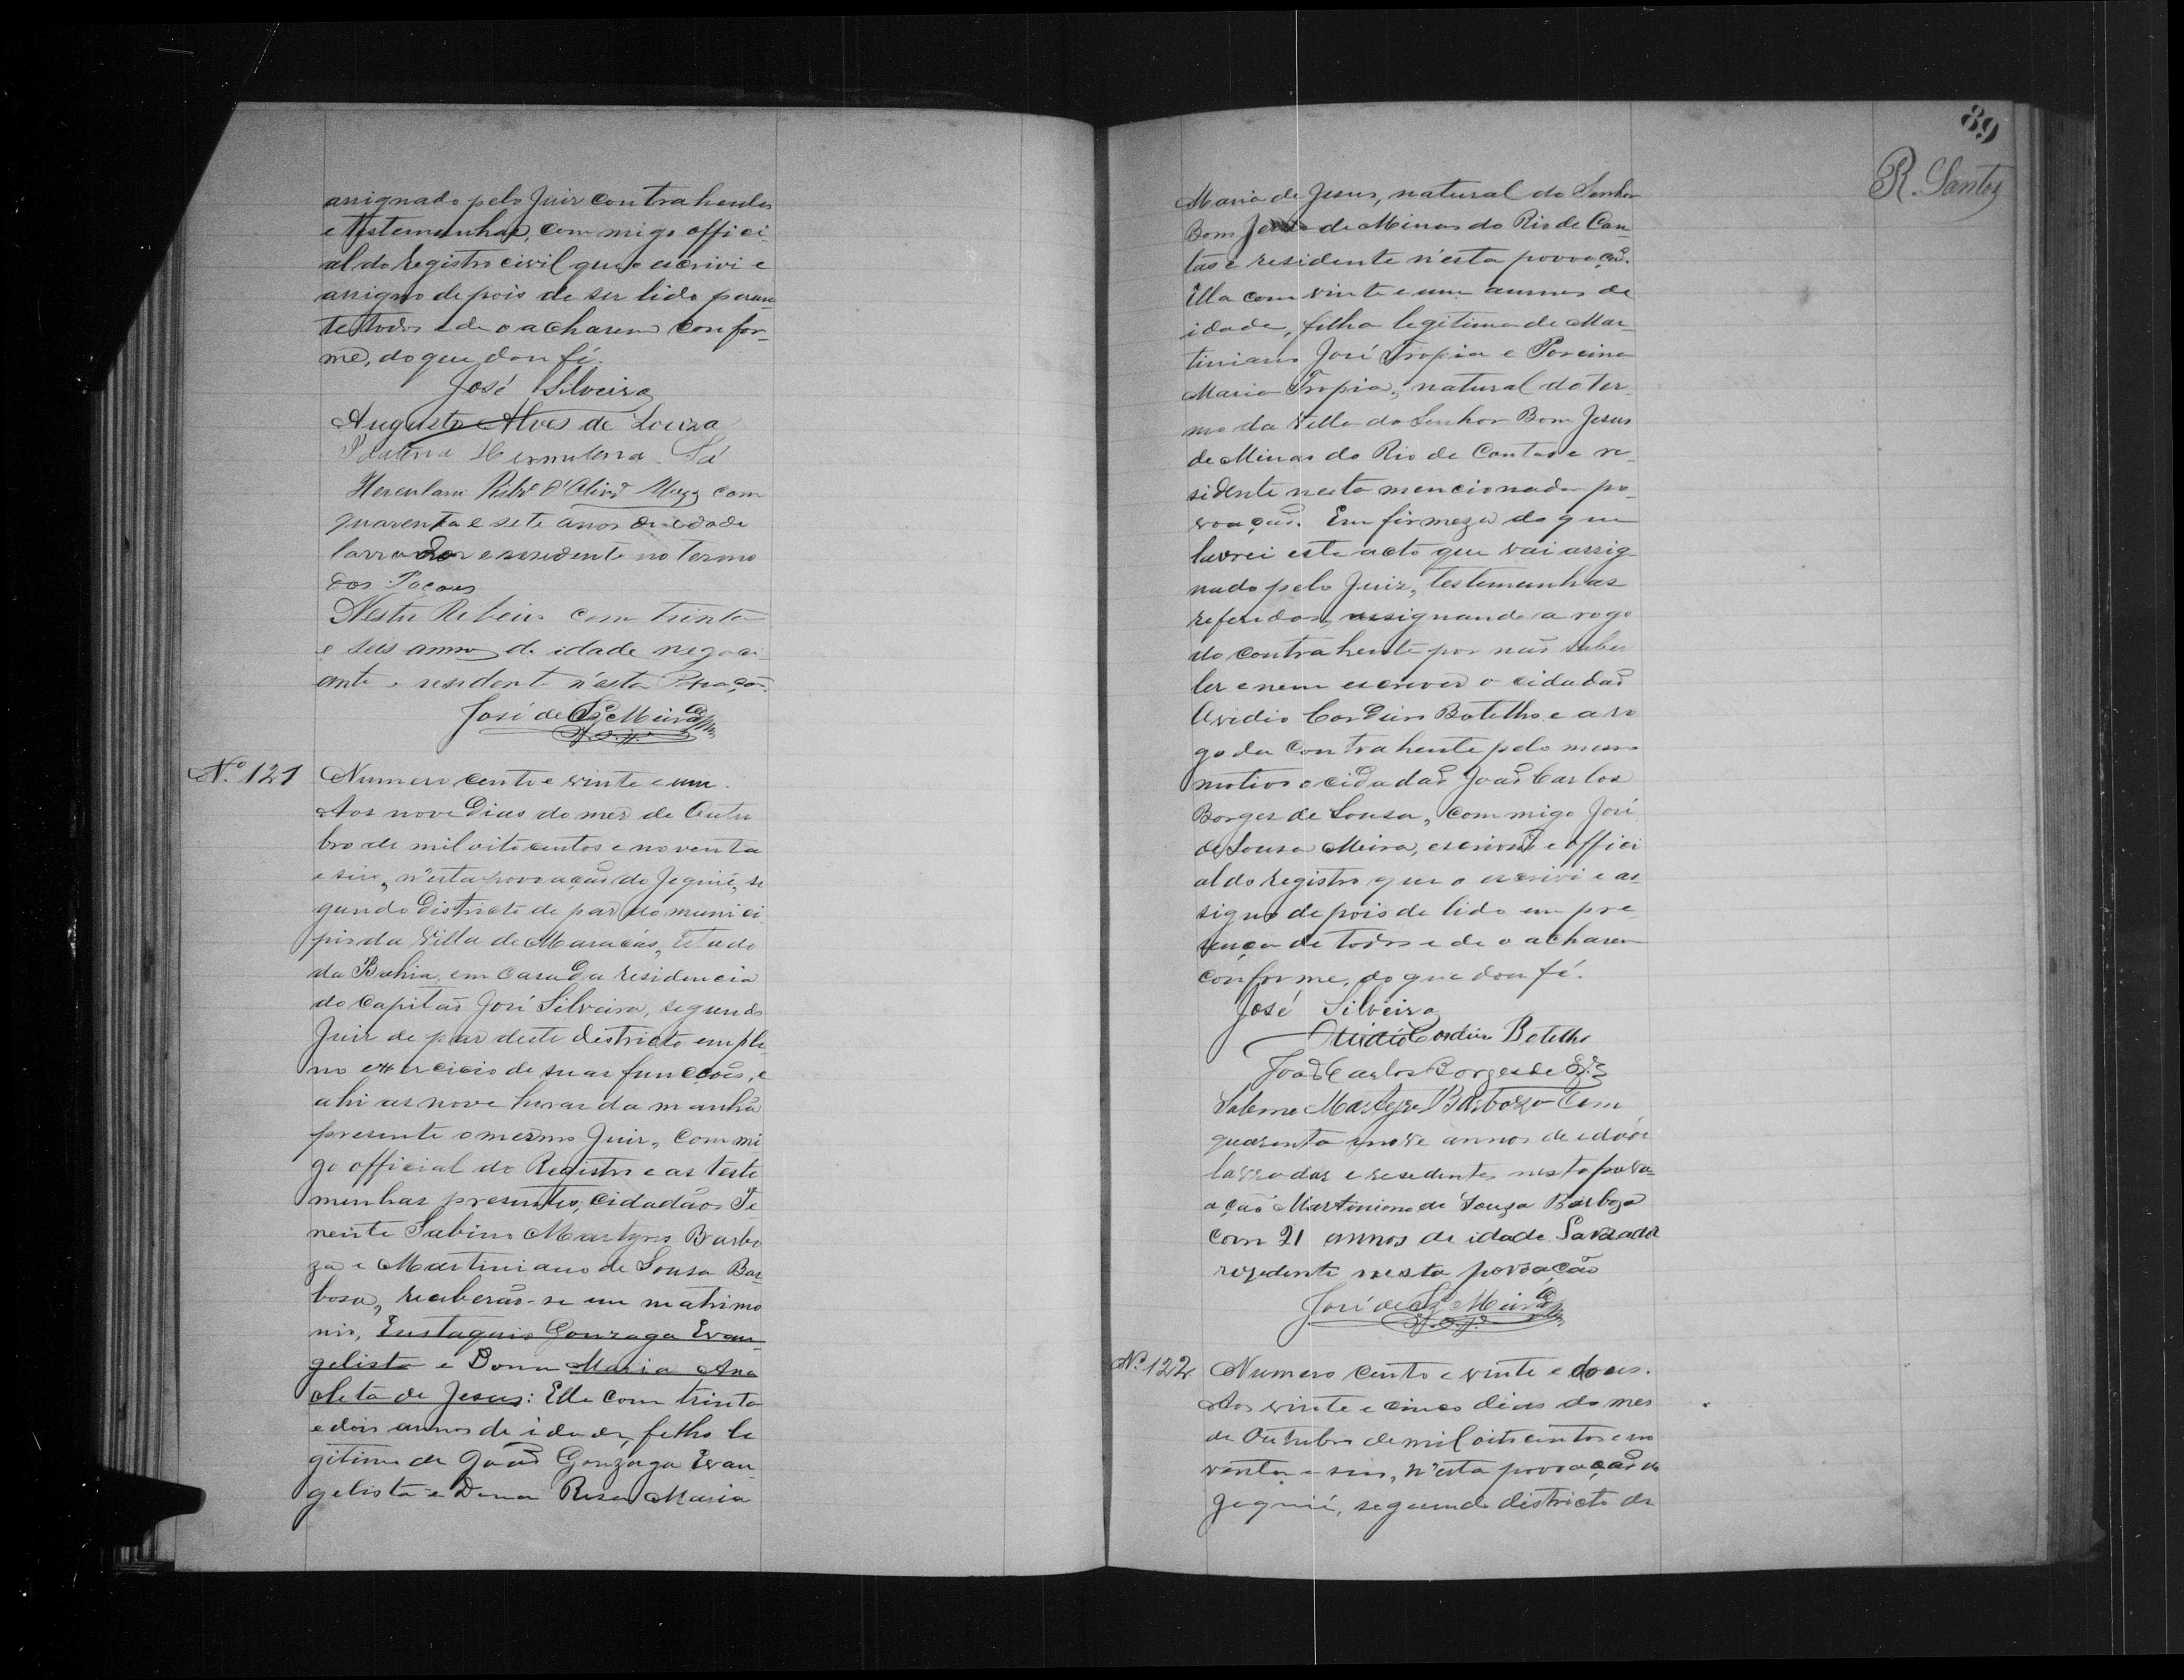 assignado pelo Juiz contrahentes
e testemunhas, commigo offici-
al do registro civil que o escrivi e
assigno depois de ser lido peran-
te todos e de o acharem confor-
me, do que dou fé.
José Silveira
Augusto Alves de Souza
Sá
com
quarenta e sete anos de edade
lavrador e resedente no termo
dos Poçoes
Nestor Ribeiro com trinta
e seis annos de idade negoci-
ante e resedente n'esta
José de Sz.ª Meira
Nº 121
Numero cento e vinte e um.
Aos nove dias do mez de Outu
bro de mil oito centos e noventa
e seis, n'esta povoação do Jequié, se
gundo districto de paz do munici
pio da Villa de Maracás, Estado
da Bahia, em casa da residencia
do Capitão José Silveira, segundo
Juiz de paz deste districto em ple
no exercicio de suas funcções, e
ahi as nove horas da manhã
presente o mesmo Juiz, commi
go official do Registro e as teste
munhas presentes, cidadãos Te
nente Sabino Martyres Barbo
za e Martiniano de Sousa Bar
bosa, receberão-se em matrimo
nio, Eustaquio Gonzaga Evan-
gelista e Dona Maria Ana
cleta de Jesus: Elle com trinta
e dois annos de idade, filho le
gitimo de João Gonzaga Evan
gelista e Dona Rosa Maria
89
R. Santos
Maria de Jesus, natural do Senhor
Bom Jesus de Minas do Rio de Con-
tas e residente n'esta povoação.
Ella com vinte e um annos de
idade, filha legitima de Mar-
tiniano José Tropia e Porcina
Maria Tropia, natural do ter-
mo da Villa do Senhor Bom Jesus
de Minas do Rio de Contas e re-
sidente nesta mencionada po-
voação. Em firmeza do que
lavrei este acto que vai assig-
nado pelo Juiz, testemunhas
referidas, assignando a rogo
do contrahente por não saber
ler e nem escrever o cidadão
Ovidio Cordeiro Botelho e a ro
go da contrahente pelo mesmo
motivo o cidadão João Carlos
Borges de Sousa, commigo José
de Sousa Meira, escrivão e offici
al do registro que o escrivi e as-
signo depois de lido em pre-
sença de todos e de o acharem
conforme, do que dou fé.
José Silveira
Ovidio Cordeiro Botelho
João Carlos Borges de Sz.ª
Sabino Martyres Barboza com
quarenta e nove annos de edade
lavrador e resedente nesta povo-
ação Martiniano de Souza Barboza
com 21 annos de idade Lavrador
rezedente nesta povoação
José de Sz.ª Meira
Nº 122
Numero cento e vinte e dous.
Aos vinte e cinco dias do mes
de Outubro de mil oito centos e no
venta e seis, n'esta povoação do
Jequié, segundo districto de